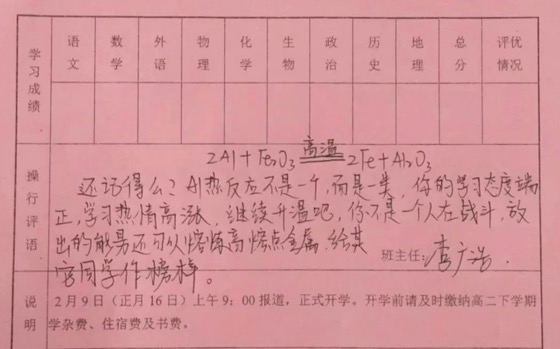 学习成绩 语文 数学 外语 物理 化学 生物 政治 历史 地理 总分 评优情况
操行评语
2Al+Fe₂O₃ 高温 2Fe+Al₂O₃
还记得么?Al热反应不是一个,而是一类,你的学习态度端
正,学习热情高涨,继续升温吧,你不是一个人在战斗,放
出的能量还可以熔炼高熔点金属,给其
它同学作榜样。
班主任:李广浩.
说明
2月9日(正月16日)上午9:00报道,正式开学。开学前请及时缴纳高二下学期
学杂费、住宿费及书费。